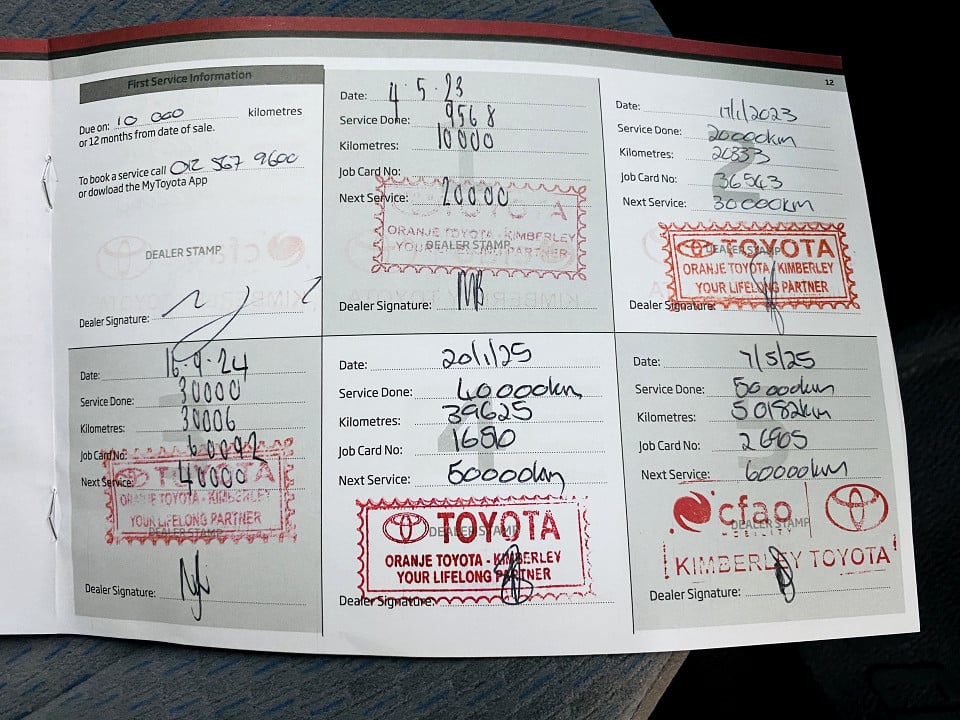 12
First Service Information
Due on: 10 000 kilometres
or 12 months from date of sale.
To book a service call 012 367 9600
or dowload the MyToyota App
DEALER STAMP
Dealer Signature:
Date: 4.5.23
Service Done: 9568
Kilometres: 10000
Job Card No:
Next Service: 20000
TOYOTA
ORANJE TOYOTA - KIMBERLEY
YOUR LIFELONG PARTNER
DEALER STAMP
Dealer Signature:
Date: 17/1/2023
Service Done: 20000km
Kilometres: 20333
Job Card No: 36543
Next Service: 30000km
TOYOTA
DEALER STAMP
ORANJE TOYOTA - KIMBERLEY
YOUR LIFELONG PARTNER
Dealer Signature:
Date: 16.9.24
Service Done: 30000
Kilometres: 30006
Job Card No: 60092
Next Service: 40000
TOYOTA
ORANJE TOYOTA - KIMBERLEY
YOUR LIFELONG PARTNER
DEALER STAMP
Dealer Signature:
Date: 20/1/25
Service Done: 40000km
Kilometres: 39625
Job Card No: 1650
Next Service: 50000km
TOYOTA
DEALER STAMP
ORANJE TOYOTA - KIMBERLEY
YOUR LIFELONG PARTNER
Dealer Signature:
Date: 7/5/25
Service Done: 50000km
Kilometres: 50182km
Job Card No:
Next Service: 60000km
cfao
MOBILITY
DEALER STAMP
KIMBERLEY TOYOTA
Dealer Signature: